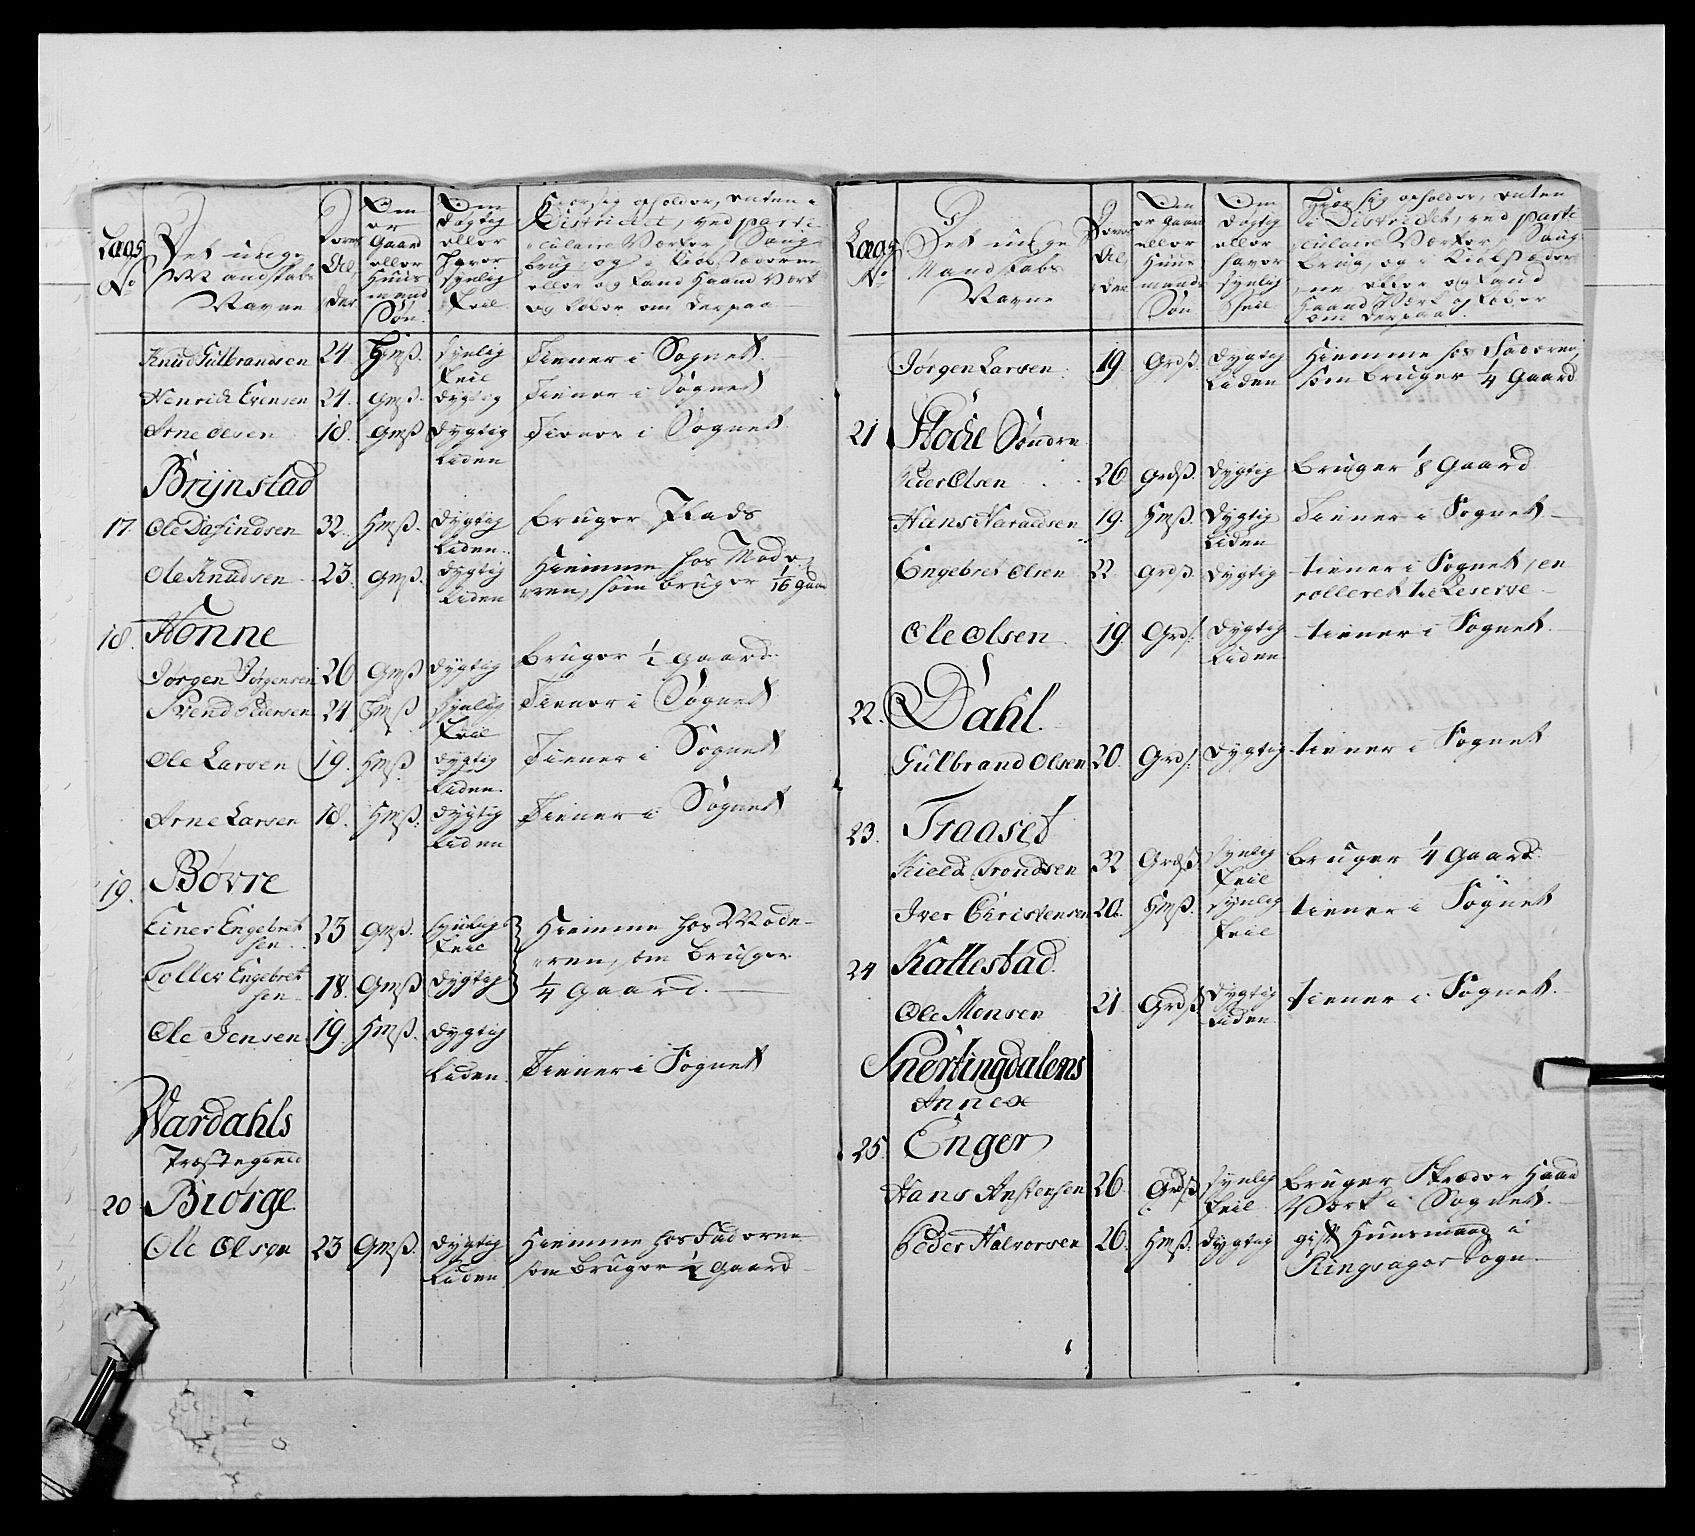 Laags No
Det unge Mandskabs Navne
Deres Alder
Om er Gaard eller Huusmands Søn
Om Dygtig eller haver synlig Feil
Districtet, ved particulaire Værker, Saugbrug, og i Kiøbstæderne eller og Land Haand Værk og Løber om derpaa
Knud Gulbrandsen 24 Hmß. synlig Feil Tiener i Sognet
Henrich Evensen 24. Gmß. Dygtig Tiener i Sognet
Arne Olsen 18. Gmß Dygtig Liden Tiener i Sognet
Brynstad
17. Ole Dafindsen 32. Hmß. Dygtig Liden. bruger Plads
Ole Knudsen 23. Gmß. Dygtig Liden Hiemme hos Moderen, som bruger 1/16 gaard
18. Honne
Jørgen Jørgensen 26 Gmß Dygtig bruger 1/2 gaard
Svend Pedersen 24 Hmß synlig Feil Tiener i Sognet
Ole Larsen 19. Hmß. Dygtig Liden Tiener i Sognet
Arne Larsen 18. Hmß. Dygtig Liden Tiener i Sognet
19. Bøvre
Einer Engebretsen 23 Gmß. synlig Feil Hiemme hos Moderen, som bruger
Toller Engebretsen 18. Gmß Dygtig 1/4 Gaard.
Ole Jensen 19. Hmß. Dygtig Liden. Tiener i Sognet
Wardahls
Præstegield
20 Biørge
Ole Olsen 23 Gmß. Dygtig Liden Hiemme hos Faderen som bruger 1/2 Gaard
Laags No
Det unge Mandskabs Navne
Deres Alder
Om er Gaard eller Huusmands Søn
Om Dygtig eller haver synlig Feil
Hvor sig opholder, enten i Districtet, ved particulaire Værker, Saugbrug, og i Kiøbstæderne eller og Land Haand Værk og Løber om derpaa.
Jørgen Larsen 19. Grdß Dygtig Liden Hiemme hos Faderen, som bruger 1/4 Gaard
21 Fløde Søndre
Peder Olsen 26 Grdß. Dygtig bruger 1/8 Gaard
Hans Haraldsen 19. Hmß. Dygtig Liden Tiener i Sognet
Engebret Olsen 22 Grdß. Dygtig tiener i Sognet, enrolleret til Reserve
Ole Olsen 19 Grdß. Dygtig Liden tiener i Sognet
22. Dahl.
Gulbrand Olsen 20. Grdß. Dygtig tiener i Sognet
23. Traaset
Kield Trondsen 32 Grdß. synlig Feil bruger 1/4 gaard
Iver Christensen 20. Hmß. synlig Feil tiener i Sognet
24 Kallestad
Ole Monsen 21 Grdß Dygtig Liden tiener i Sognet
Snertingdalens
Annex
25. Enger
Hans Anstensen 26 Grdß synlig Feil bruger Skræder Haand Værk i Sognet
Peder Halvorsen 26. Hmß. Dygtig gift Huusmand i Ringsager Sogn